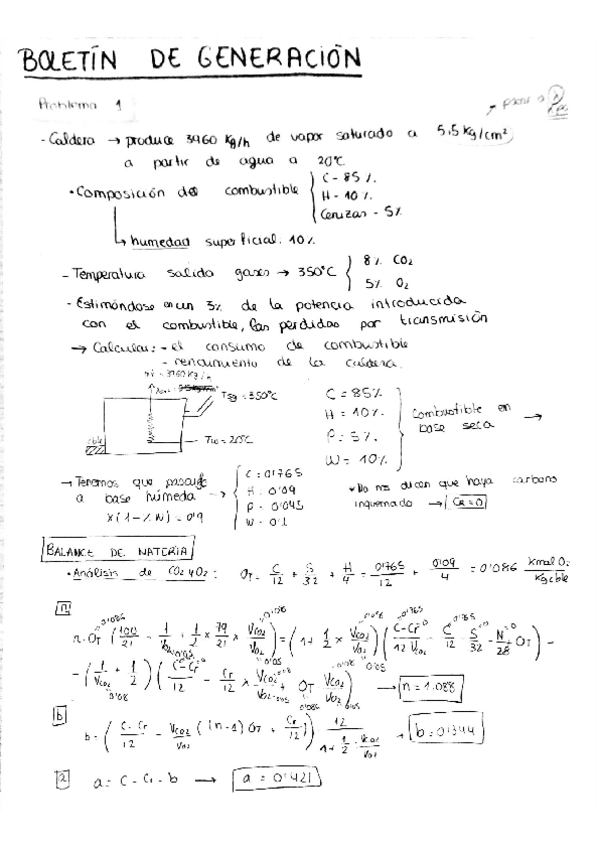 BOLETÍN DE GENERACIÓN
Problema 1
pasar a
- Caldera → produce 3960 kg/h de vapor saturado a 5,5 kg/cm²
a partir de agua a 20°C
• Composición del combustible { C - 85 %.
H - 10 %.
Cenizas - 5%
↳ humedad superficial: 10%.
- Temperatura salida gases → 350°C { 8% CO₂
5% O₂
- Estimándose en un 3% de la potencia introducida
con el combustible, las perdidas por transmisión
→ Calcular: - el consumo de combustible
- rendimiento de la caldera.
ṁ = 3960 kg/h
Tsg = 350°C
Tw = 20°C
cble
C = 85%
H = 10%
P = 5%
W = 10%
Combustible en base seca →
→ Tenemos que pasarlo a base húmeda →
X(1-%W) = 0'9
C: 0'765
H: 0'09
P - 0'045
W - 0'1
• No nos dicen que haya carbono inquemado → Cr=0
BALANCE DE MATERIA
• Análisis de CO₂ y O₂: OT = C/12 + S/32 + H/4 = 0'765/12 + 0'09/4 = 0'086 kmol O₂/kg cble
n
→ n = 1.088
b
b = ( C-Cr/12 - VCO₂/VO₂ ( (n-1) OT + Cr/12 )) 12/(1 + 1/2 · VCO₂/VO₂) → b = 0'1344
a
a = C - Cr - b → a = 0'421